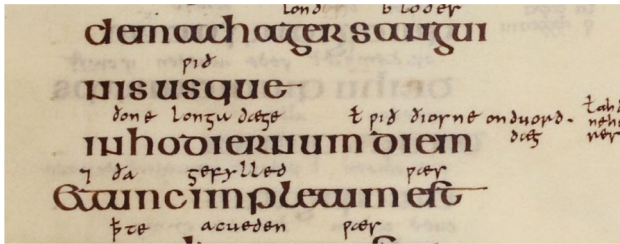 lond blodes
demach ager sangui
ƿið
nis usque
ðone longu dæge ł ƿið ðiosne ondƿord-
dæg
in hodiernum diem
⁊ ða gefylled ƿæs
Et tunc impletum est
ꝥte acueden ƿæs